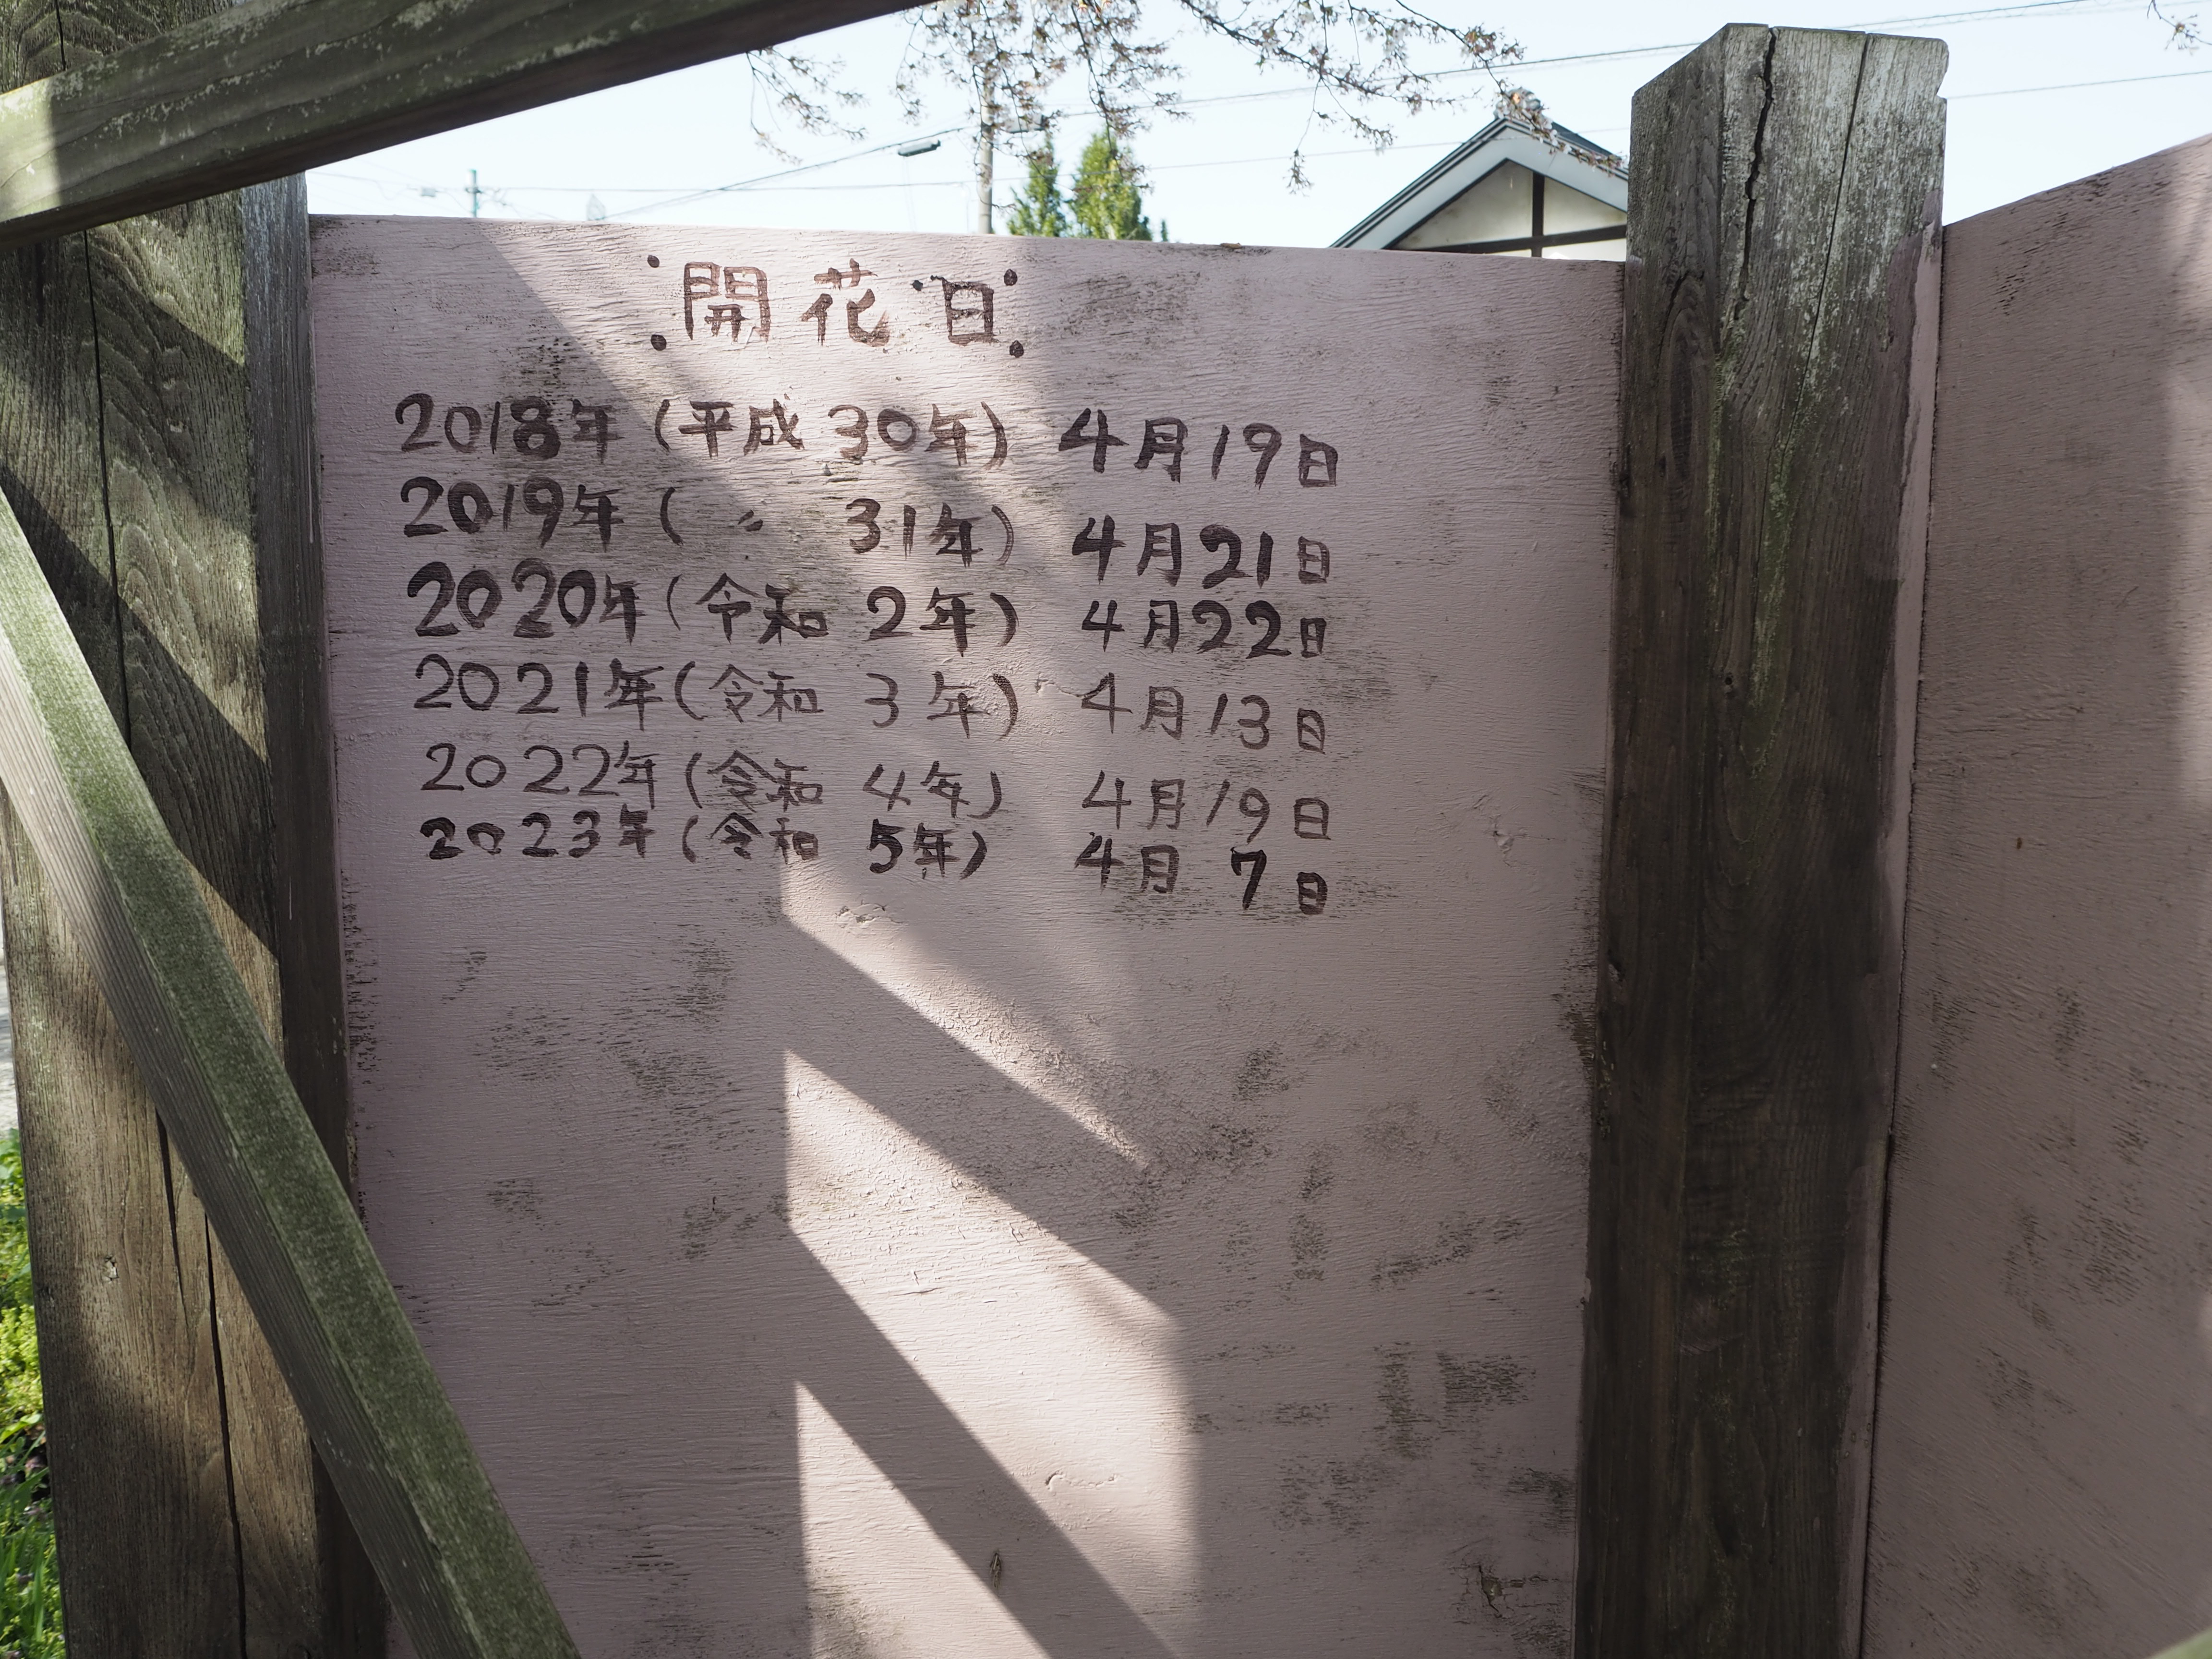 開花日
2018年(平成30年) 4月19日
2019年( 〃 31年) 4月21日
2020年(令和 2年) 4月22日
2021年(令和 3年) 4月13日
2022年(令和 4年) 4月19日
2023年(令和 5年) 4月 7日